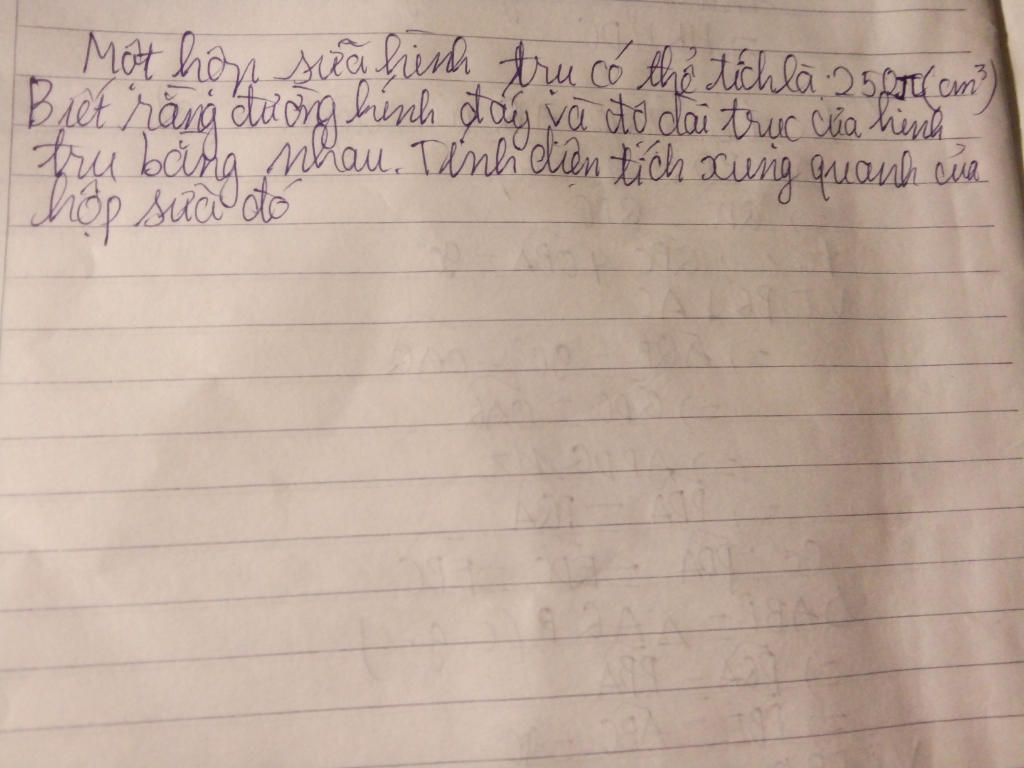 Một hộp sữa hình trụ có thể tích là 250π(cm³)
Biết rằng đường hính đáy và độ dài trục của hình
trụ bằng nhau. Tính diện tích xung quanh của
hộp sữa đó